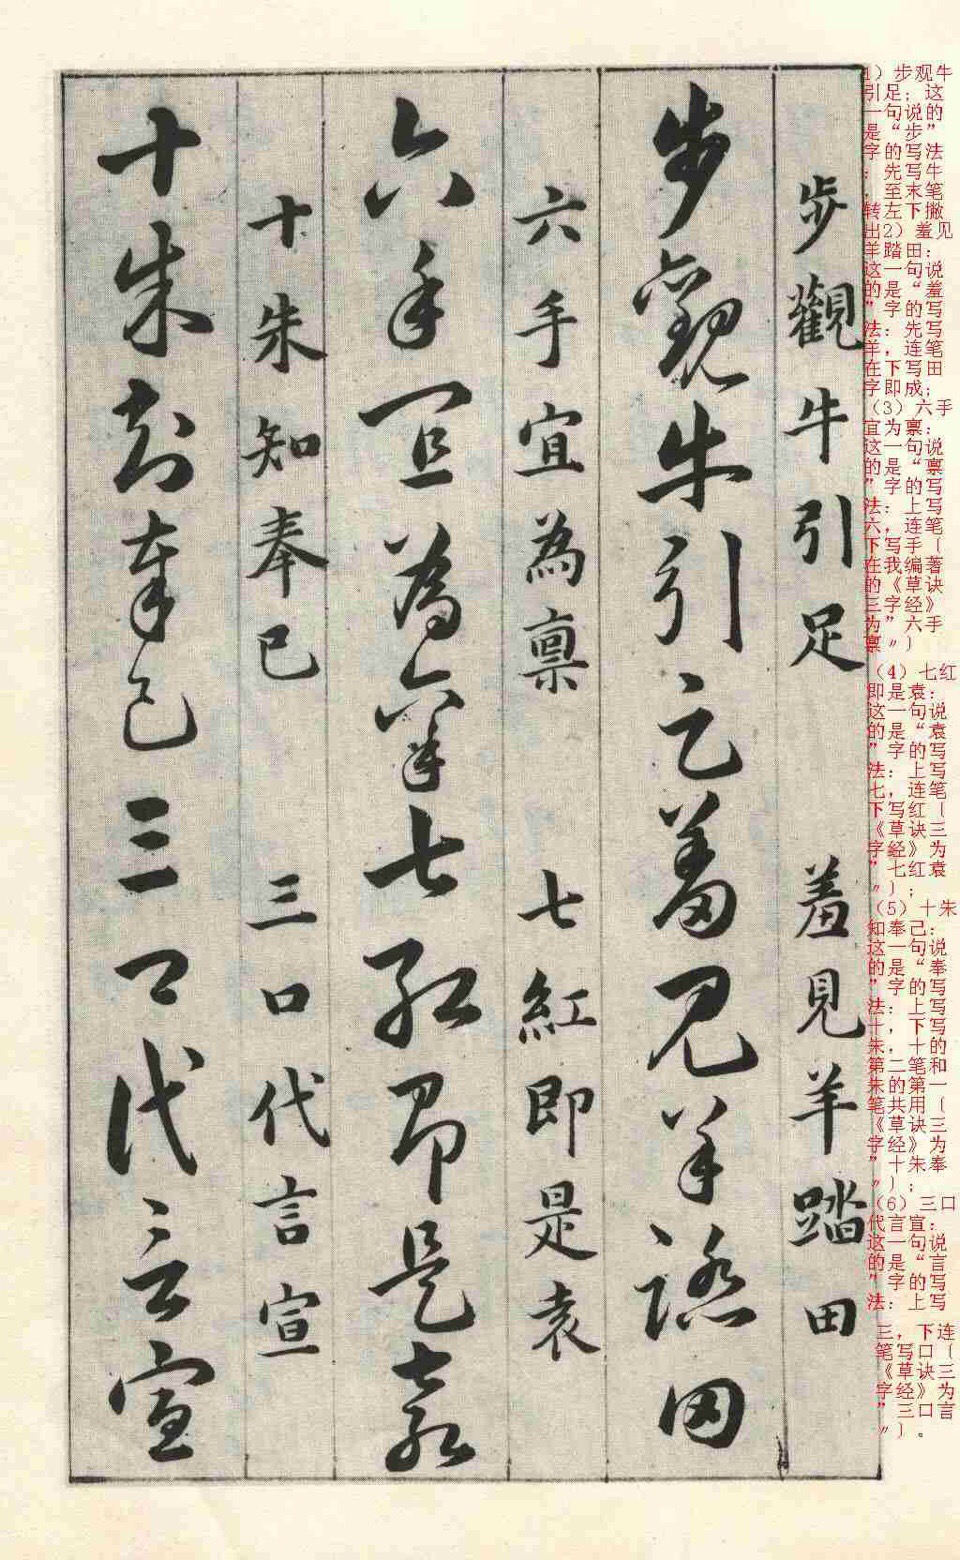 1）步观牛
引足；这
一句说的
是“步”
字的写法
：先写牛
，至末笔
转左下撇
出2）羞见
羊踏田：
这一句说
的是“羞
”字的写
法：先写
羊，连笔
在下写田
字即成；
（3）六手
宜为禀：
这一句说
的是“禀
”字的写
法：上写
六，连笔
下写手（
在我编著
的《草诀
三字经》
为”六手
禀〃）
（4）七红
即是袁：
这一句说
的是“袁
”字的写
法：上写
七，连笔
下写红（
《草诀三
字经》为
”七红袁
〃）；
（5）十朱
知奉己：
这一句说
的是“奉
”字的写
法：上写
十，下写
朱，十的
第二笔和
朱的第一
笔共用（
《草诀三
字经》为
”十朱奉
〃）；
（6）三口
代言宣：
这一句说
的是“言
”字的写
法：上写
三，下连
笔写口（
《草诀三
字经》为
”三口言
〃）。
步觀牛引足 羞見羊踏田
步觀牛引足羞見羊踏田
六手宜為禀 七紅即是袁
六手宜為禀七紅即是袁
十朱知奉已 三口代言宣
十朱知奉已三口代言宣